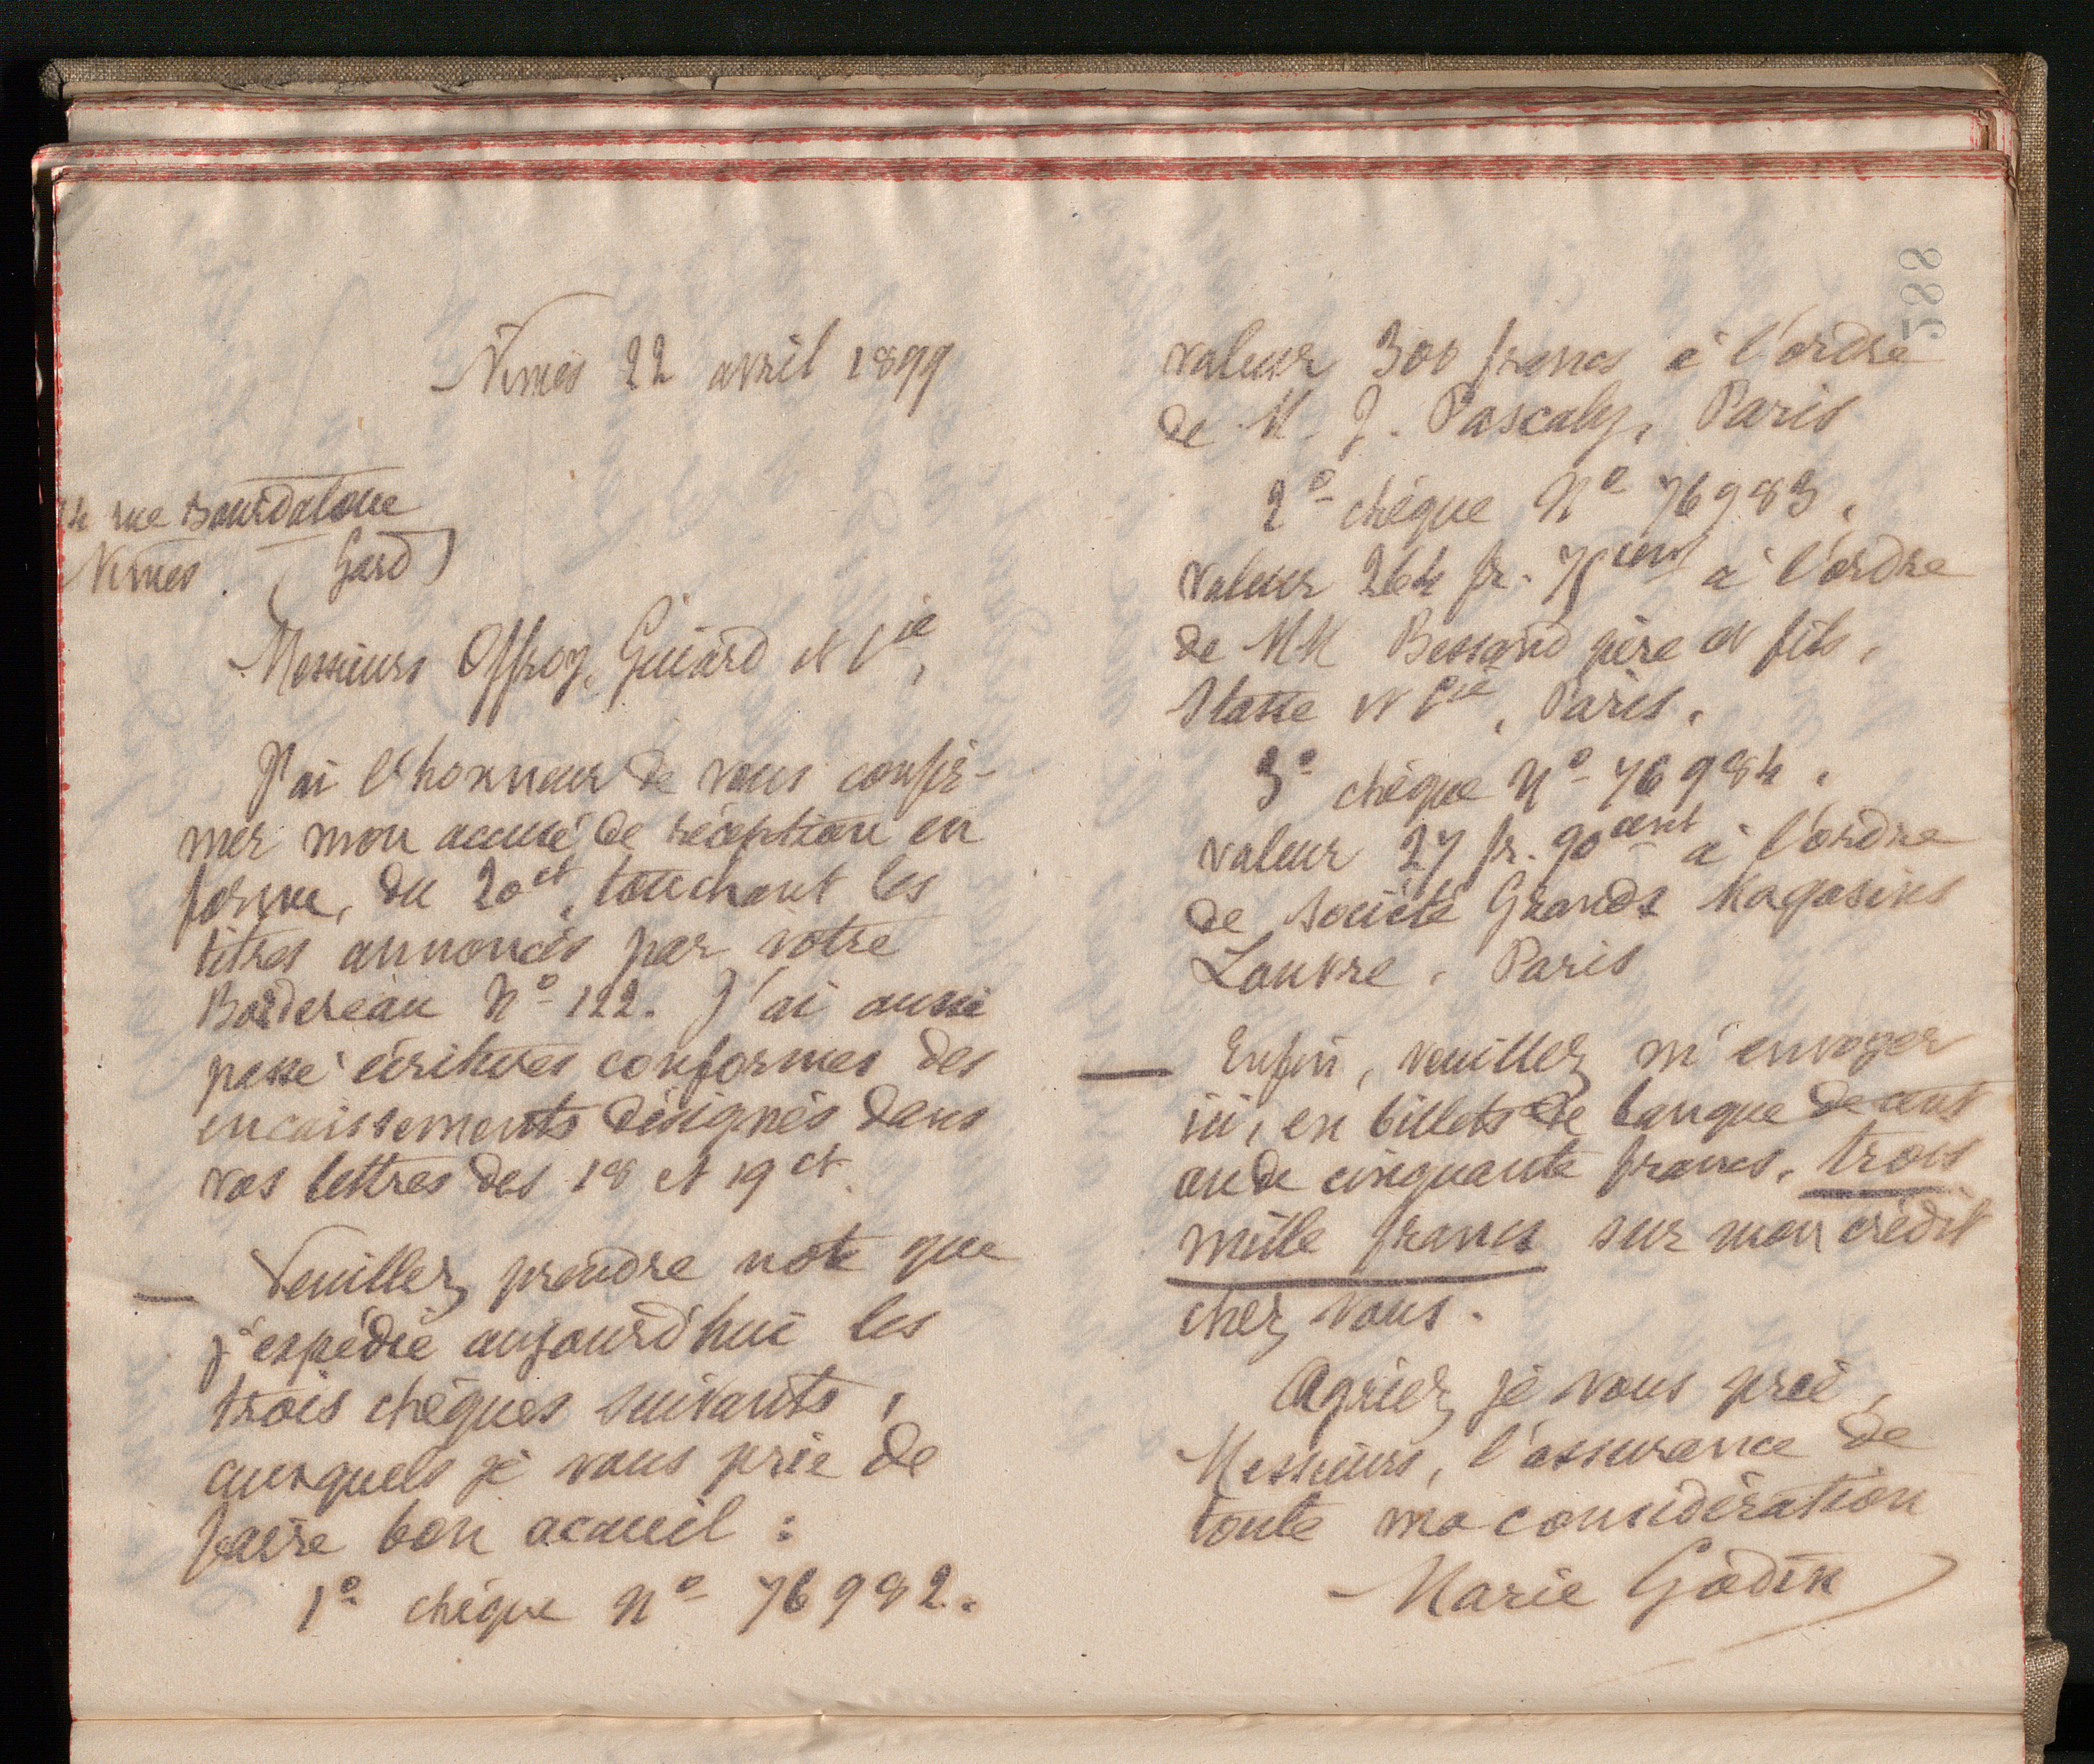 Nîmes 22 avril 1899
14 rue Bourdaloue
Nîmes (Gard)
Messieurs Offroy, Guiard et Cie,
J'ai l'honneur de vous confir-
mer mon accusé de réception en
forme, du 20 ct, touchant les
titres annoncés par votre
Bordereau No 122. J'ai aussi
passé écritures conformes des
encaissements désignés dans
vos lettres des 18 et 19 ct.
— Veuillez prendre note que
j'expédie aujourd'hui les
trois chèques suivants,
auxquels je vous prie de
faire bon accueil :
1o chèque No 76982.
588
valeur 300 francs à l'ordre
de M. J. Pascaly, Paris
2o chèque No 76983.
valeur 264 fr. 75 cent à l'ordre
de MM Bessand père et fils,
Stasse et Cie, Paris.
3o chèque No 76984.
valeur 27 fr. 90 cent à l'ordre
de Société Grands Magasins
Louvre, Paris
— Enfin, veuillez m'envoyer
ici, en billets de banque de cent
ou de cinquante francs, trois
mille francs sur mon crédit
chez vous.
Agréez, je vous prie,
Messieurs, l'assurance de
toute ma considération
Marie Godin